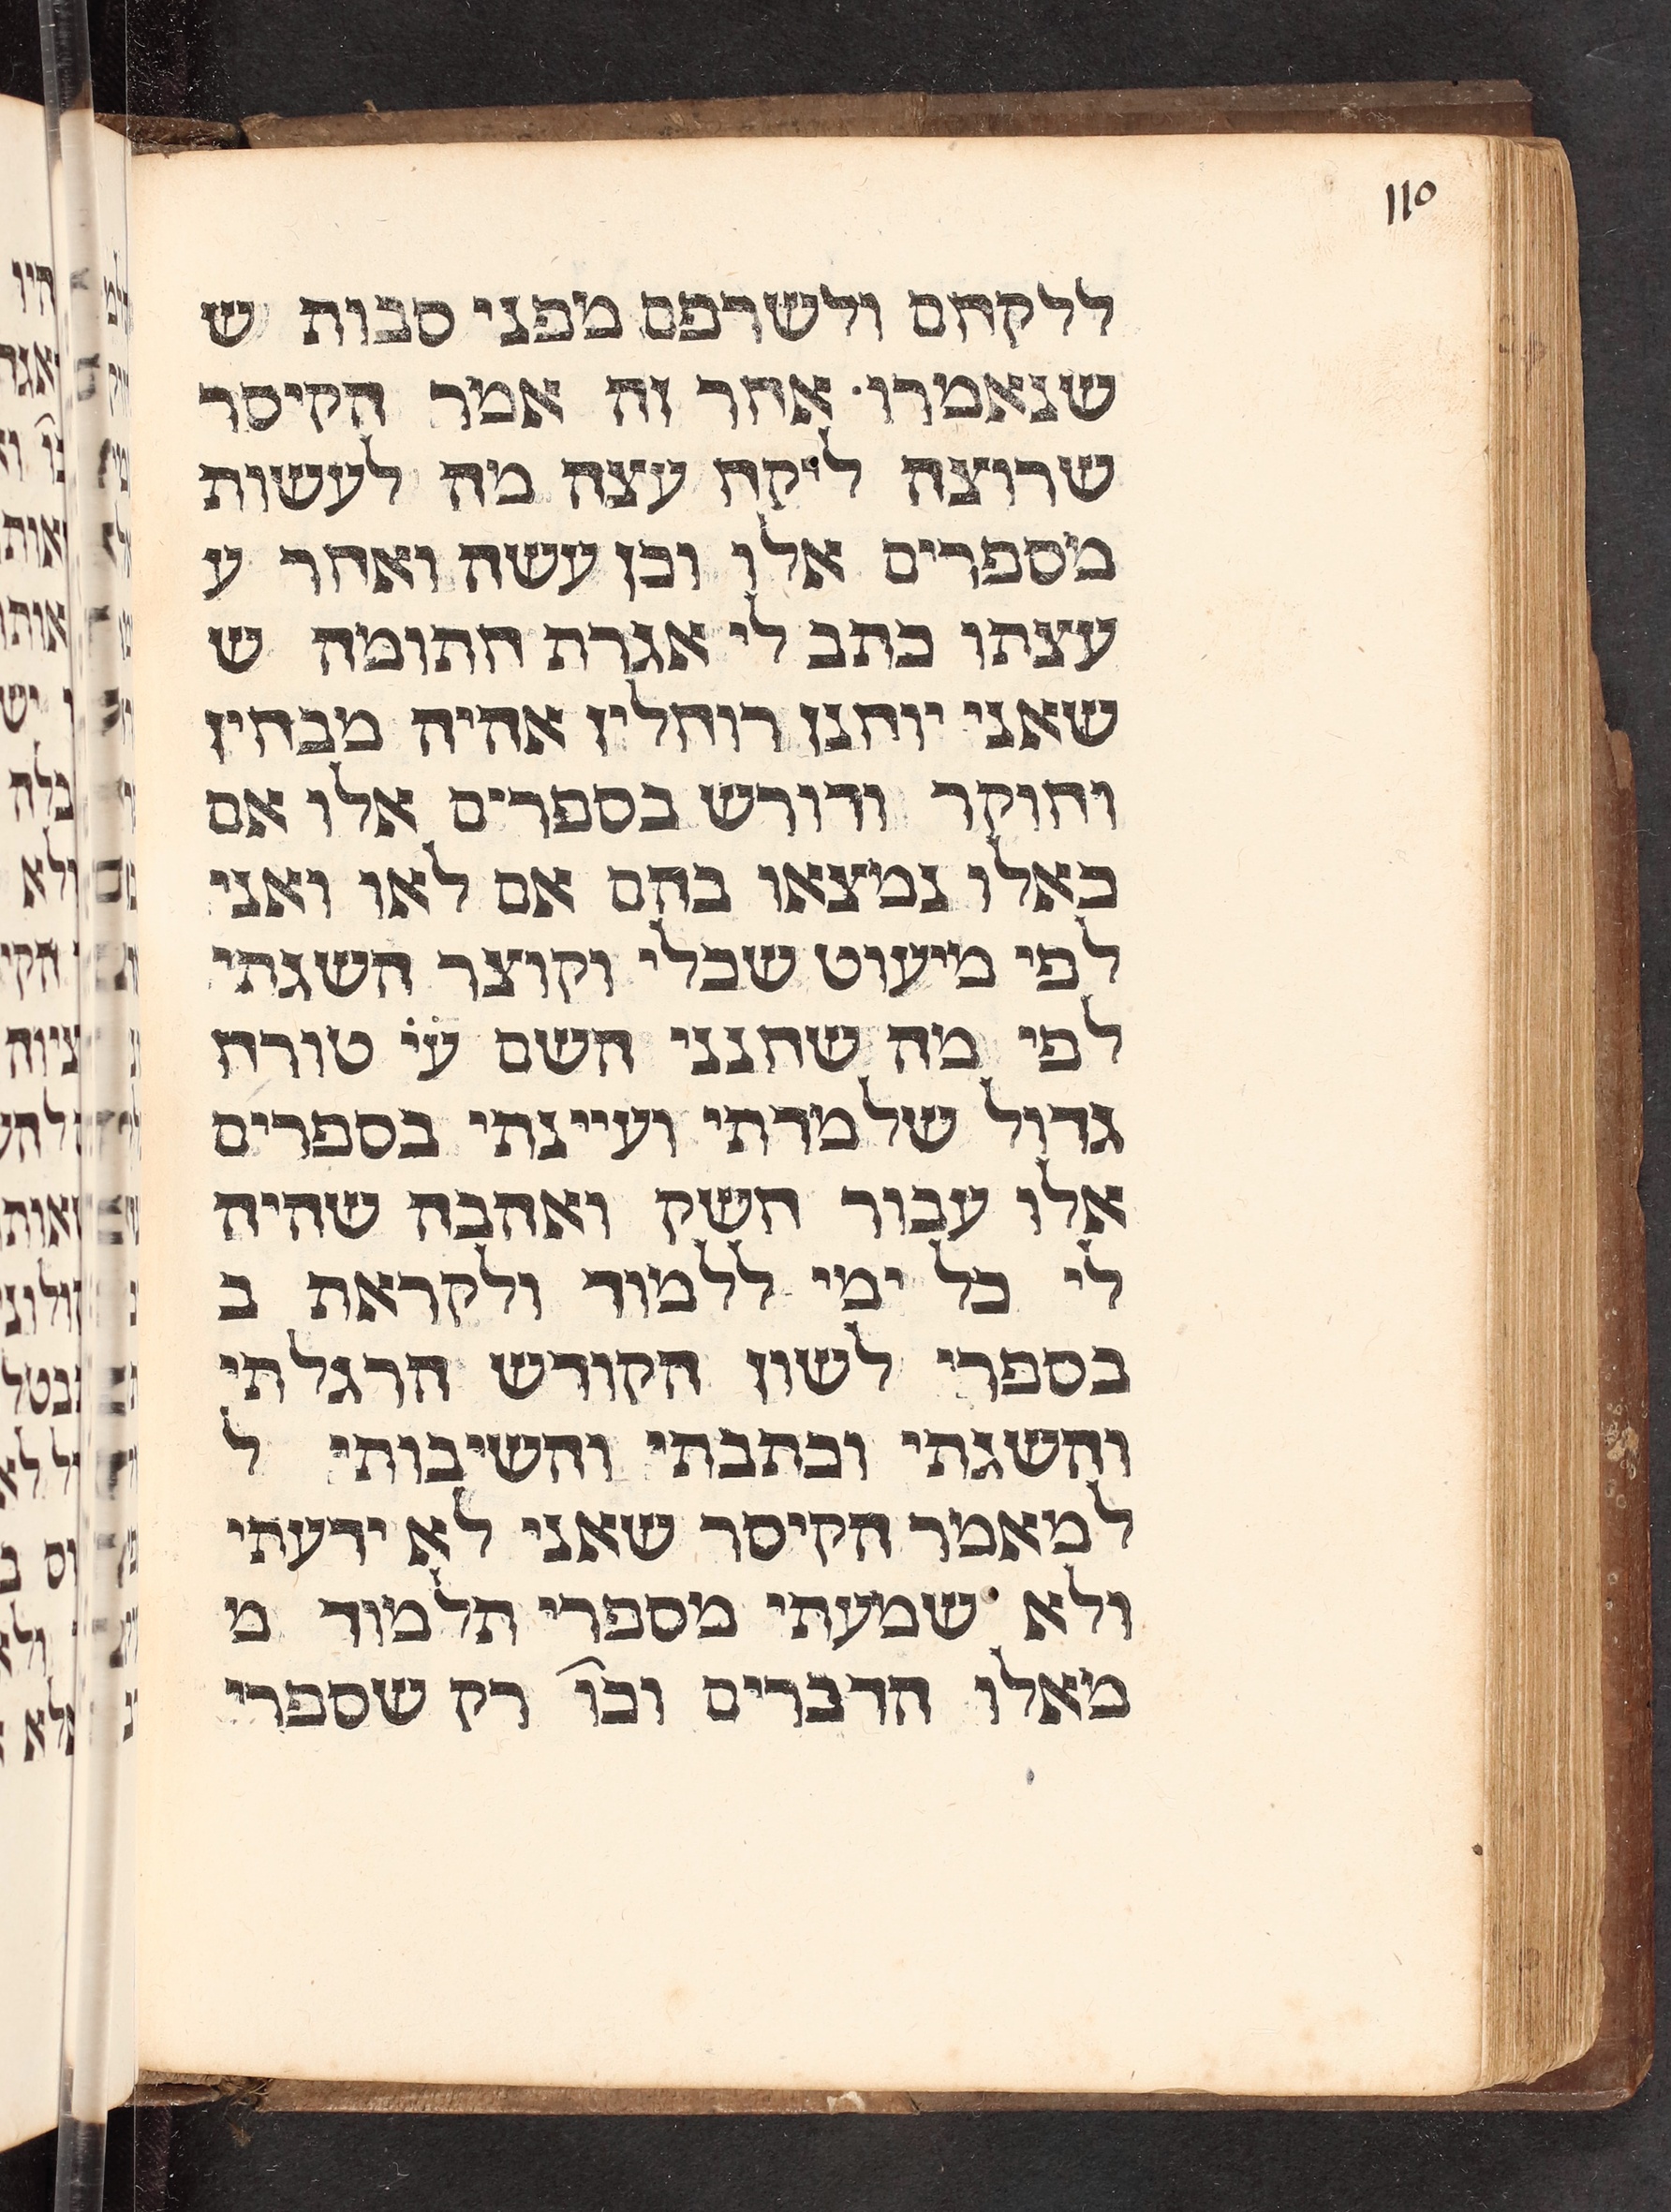 110
ללקחם ולשרפם מפני סבות ש
שנאמרו· אחר זה אמר הקיסר
שרוצה ליקח עצה מה לעשות
מספרים אלו וכן עשה ואחר ע
עצתו כתב לי אגרת חתומה ש
שאני יוחנן רוחלין אהיה מבחין
וחוקר ודורש בספרים אלו אם
כאלו נמצאו בהם אם לאו ואני
לפי מיעוט שכלי וקוצר השגתי
לפי מה שחנני השם ע׳׳י טורח
גדול שלמדתי ועיינתי בספרים
אלו עבור חשק ואהבה שהיה
לי כל ימי ללמוד ולקראת ב
בספרי לשון הקודש הרגלתי
והשגתי וכתבתי והשיבותי ל
למאמר הקיסר שאני לא ידעתי
ולא שמעתי מספרי תלמוד מ
מאלו הדברים וכו רק שספרי